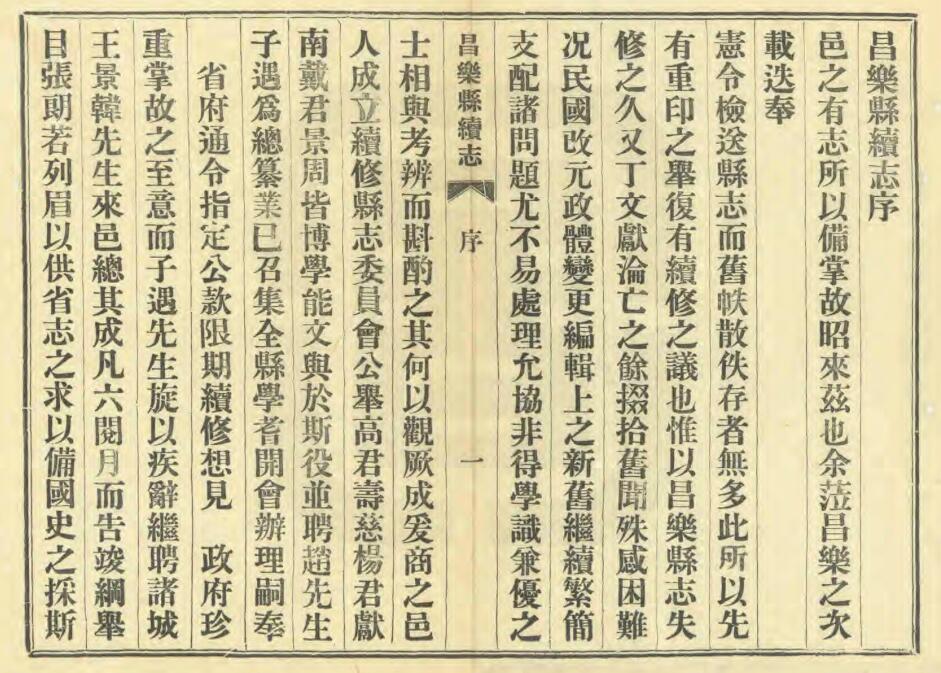 昌樂縣續志序
邑之有志所以備掌故昭來茲也余蒞昌樂之次
載迭奉
憲令檢送縣志而舊帙散佚存者無多此所以先
有重印之舉復有續修之議也惟以昌樂縣志失
修之久又丁文獻淪亡之餘掇拾舊聞殊感困難
况民國改元政體變更編輯上之新舊繼續繁簡
支配諸問題尤不易處理允協非得學識兼優之
昌樂縣續志 序 一
士相與考辨而斟酌之其何以觀厥成爰商之邑
人成立續修縣志委員會公舉高君壽慈楊君獻
南戴君景周皆博學能文與於斯役並聘趙先生
子遇爲總纂業已召集全縣學耆開會辦理嗣奉
省府通令指定公款限期續修想見 政府珍
重掌故之至意而子遇先生旋以疾辭繼聘諸城
王景韓先生來邑總其成凡六閱月而告竣綱舉
目張朗若列眉以供省志之求以備國史之採斯